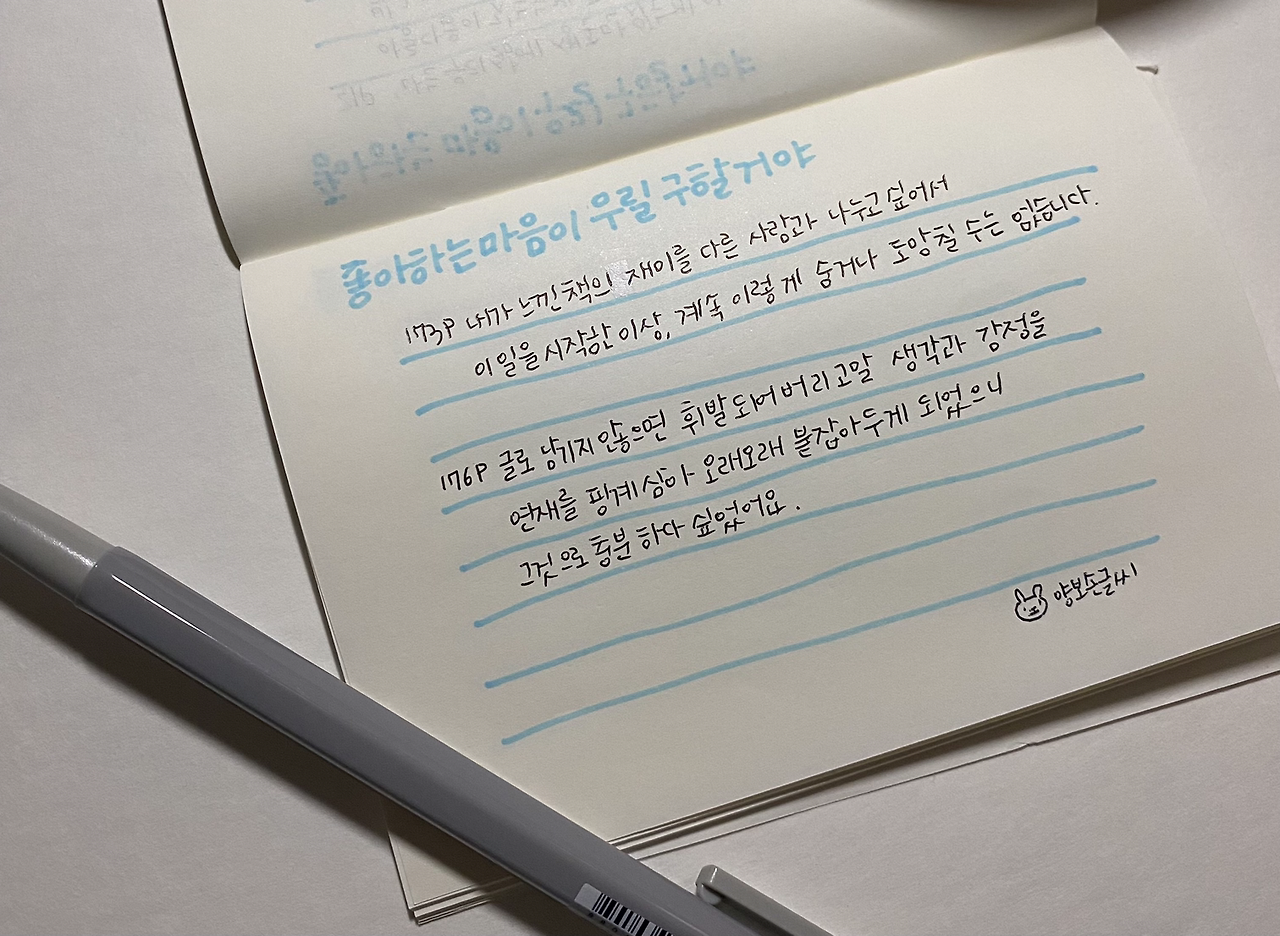 좋아하는 마음이 우릴 구할거야
173P 내가 느낀 책의 재미를 다른 사람과 나누고 싶어서
이 일을 시작한 이상, 계속 이렇게 숨거나 도망칠 수는 없습니다.
176P 글로 남기지 않으면 휘발되어버리고말 생각과 감정을
연재를 핑계삼아 오래오래 붙잡아두게 되었으니
그것으로 충분하다 싶었어요.
양보손글씨